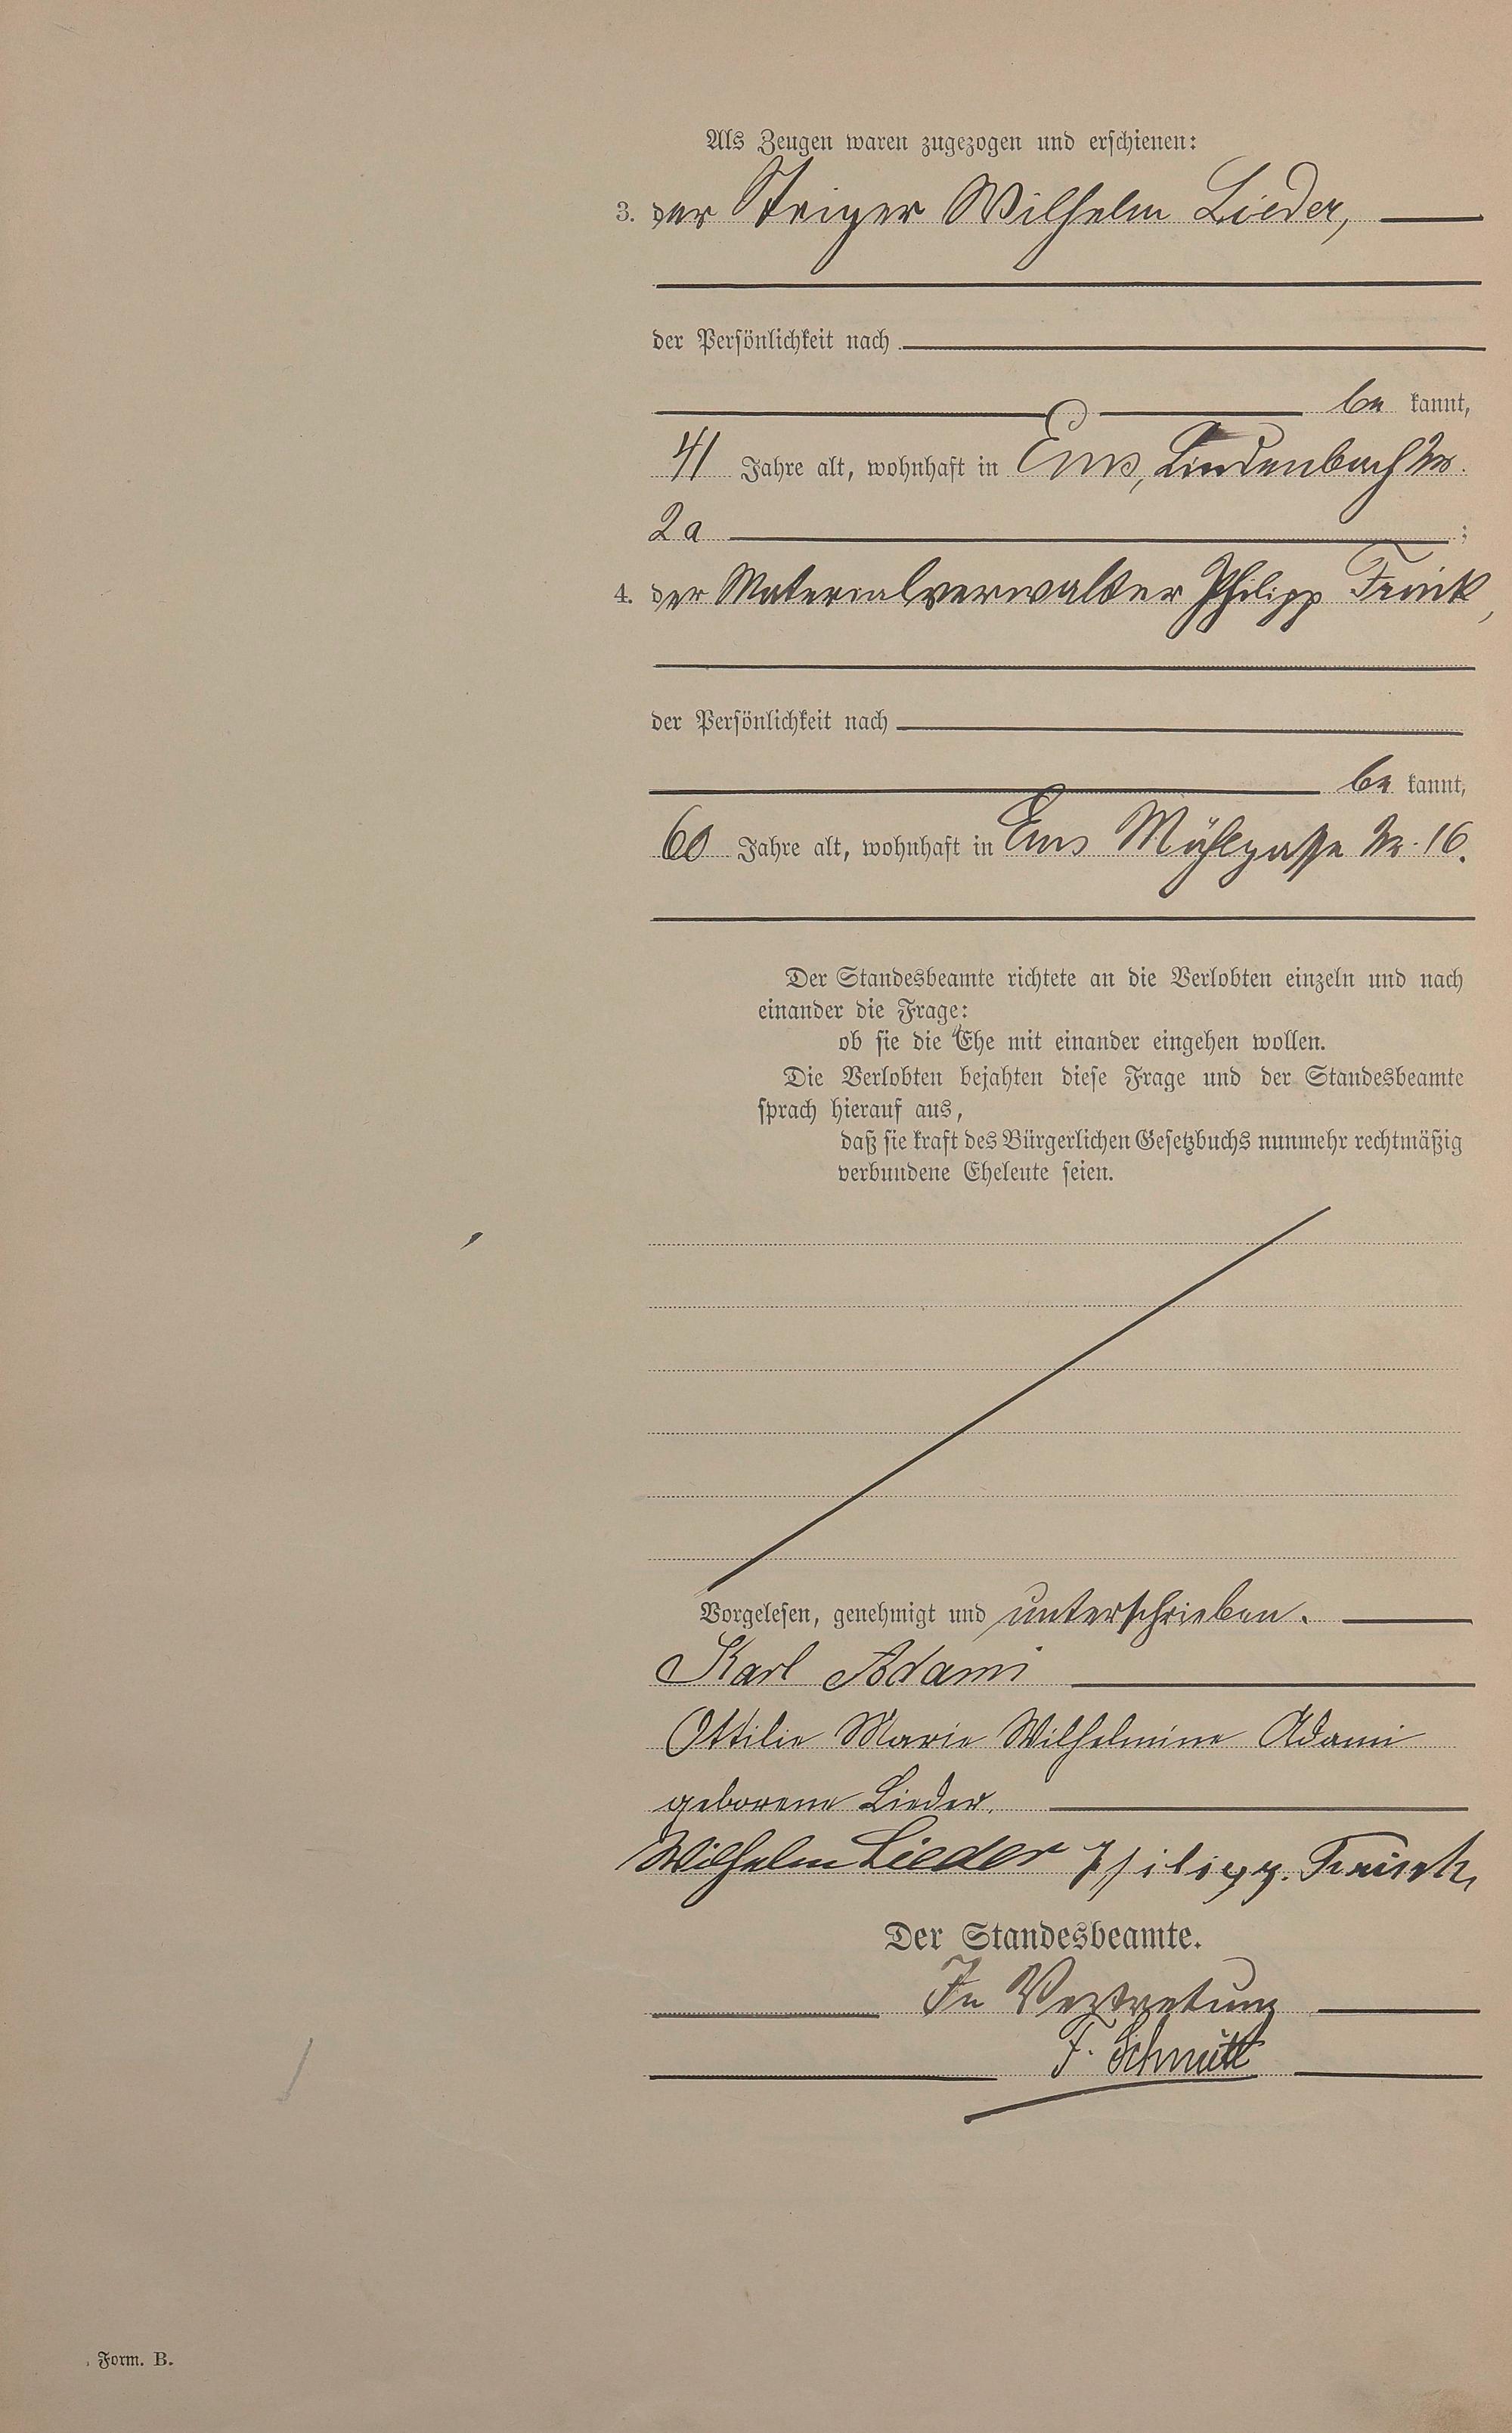 Als Zeugen waren zugezogen und erschienen:
3. der Steiger Wilhelm Lieder,
der Persönlichkeit nach
be kannt,
41 Jahre alt, wohnhaft in Ems, Lindenbach Nr.
2a ;
4. der Materialverwalter Philipp
der Persönlichkeit nach
be kannt,
60 Jahre alt, wohnhaft in Ems Mühlgasse Nr. 16.
Der Standesbeamte richtete an die Verlobten einzeln und nach
einander die Frage:
ob sie die Ehe mit einander eingehen wollen.
Die Verlobten bejahten diese Frage und der Standesbeamte
sprach hierauf aus,
daß sie kraft des Bürgerlichen Gesetzbuchs nunmehr rechtmäßig
verbundene Eheleute seien.
Vorgelesen, genehmigt und unterschrieben.
Karl Adami
Ottilie Marie Wilhelmine Adami
geborene Lieder.
Wilhelm Lieder Philipp.
Der Standesbeamte.
In Vertretung
F. Schmitt
Form. B.